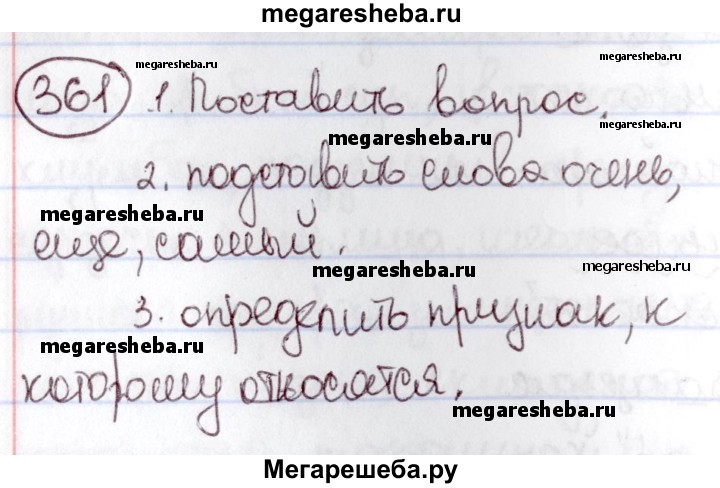 megaresheba.ru
361 1. Поставить вопрос.
megaresheba.ru
megaresheba.ru
megaresheba.ru
megaresheba.ru
2. подставить слова очень,
megaresheba.ru
еще, самый.
megaresheba.ru
megaresheba.ru
3. определить признак, к
megaresheba.ru
megaresheba.ru
которому относятся.
megaresheba.ru
Мегарешеба.ру